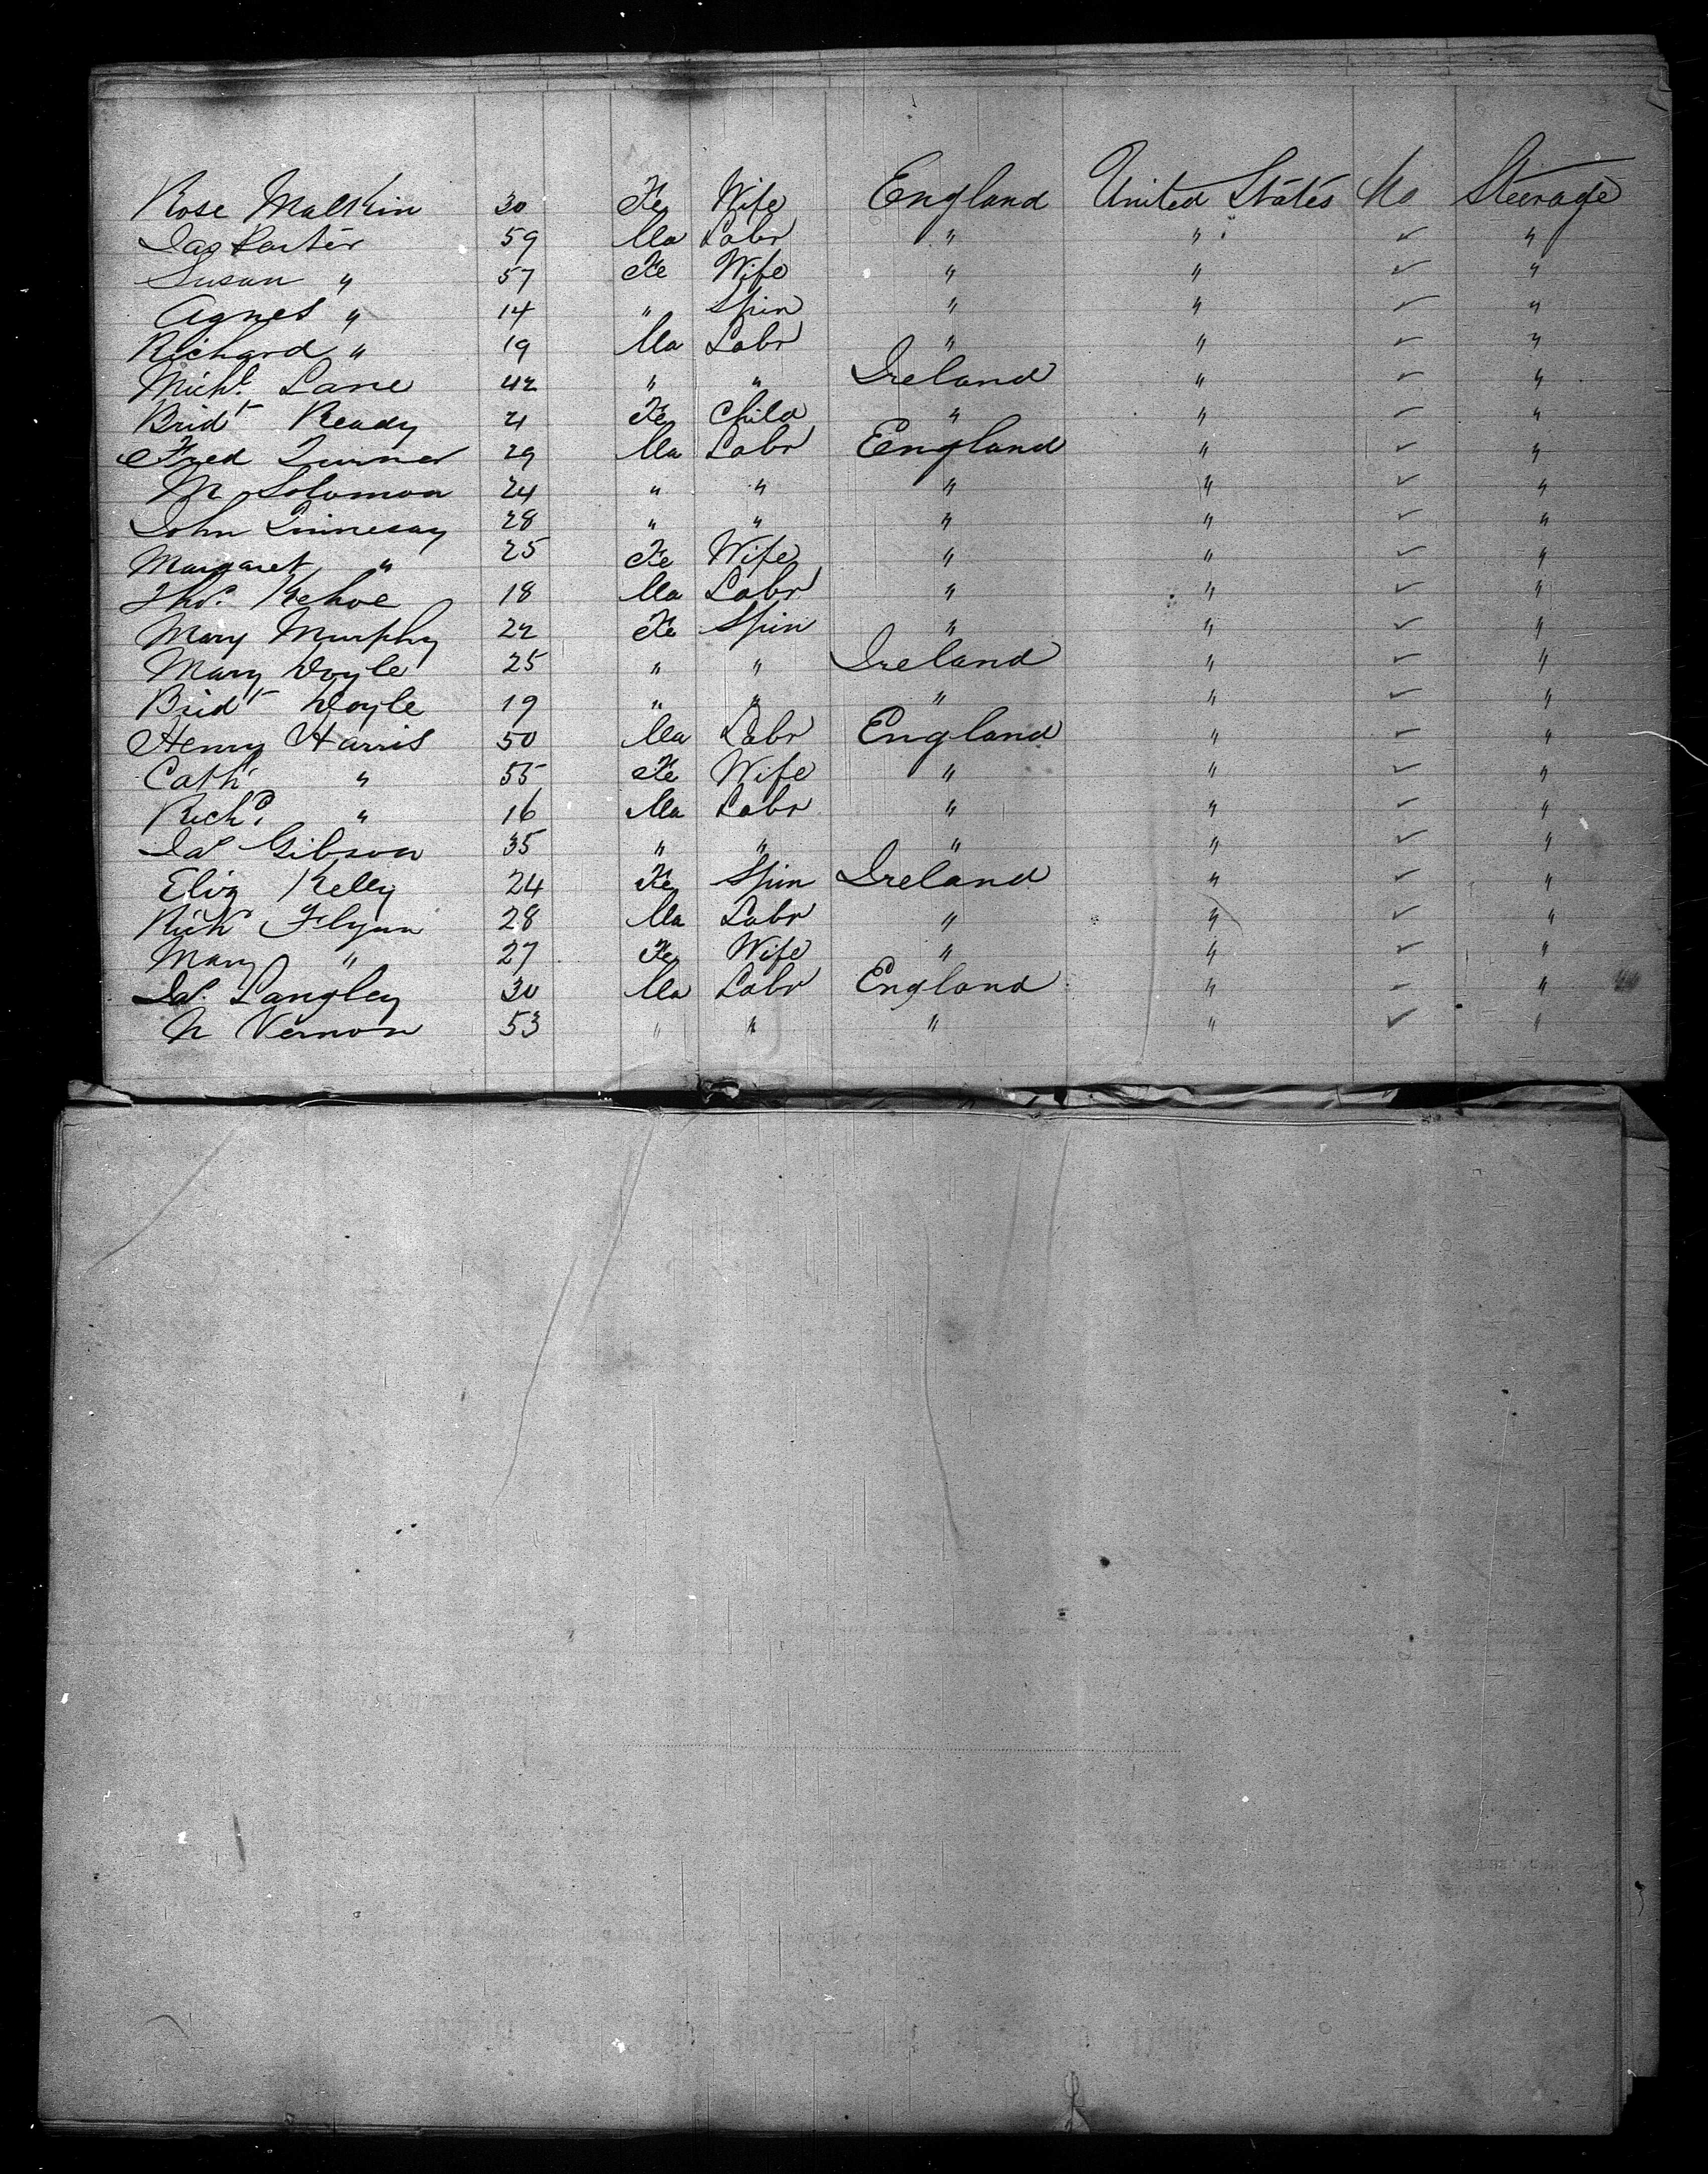 Rose Malkin 30 Fe Wife England United States No Steerage
Jas Porter 59 Ma Labr " " ✓ "
Susan " 57 Fe Wife " " ✓ "
Agnes " 14 " Spin " " ✓ "
Richard " 19 Ma Labr " " ✓ "
Michl. Lane 42 " " Ireland " ✓ "
Bridt Ready Fe Child " " ✓ "
Fred Turner 29 Ma Labr England " ✓ "
M Solomon 24 " " " " ✓ "
John 28 " " " " ✓ "
Margaret " 25 Fe Wife " " ✓ "
Thos. Kehoe 18 Ma Labr " " ✓ "
Mary Murphy 22 Fe Spin " " ✓ "
Mary Doyle 25 " " Ireland " ✓ "
Bridt Doyle 19 " " " " ✓ "
Henry Harris 50 Ma Labr England " ✓ "
Cath " 55 Fe Wife " " ✓ "
Richd. " 16 Ma Labr " " ✓ "
Jas Gibson 35 " " " " ✓ "
Eliz Kelly 24 Fe Spin Ireland " ✓ "
Richd Flynn 28 Ma Labr " " ✓ "
Mary " 27 Fe Wife " " ✓ "
Jas. Langley 30 Ma Labr England " ✓ "
N Vernon 53 " " " " ✓ "